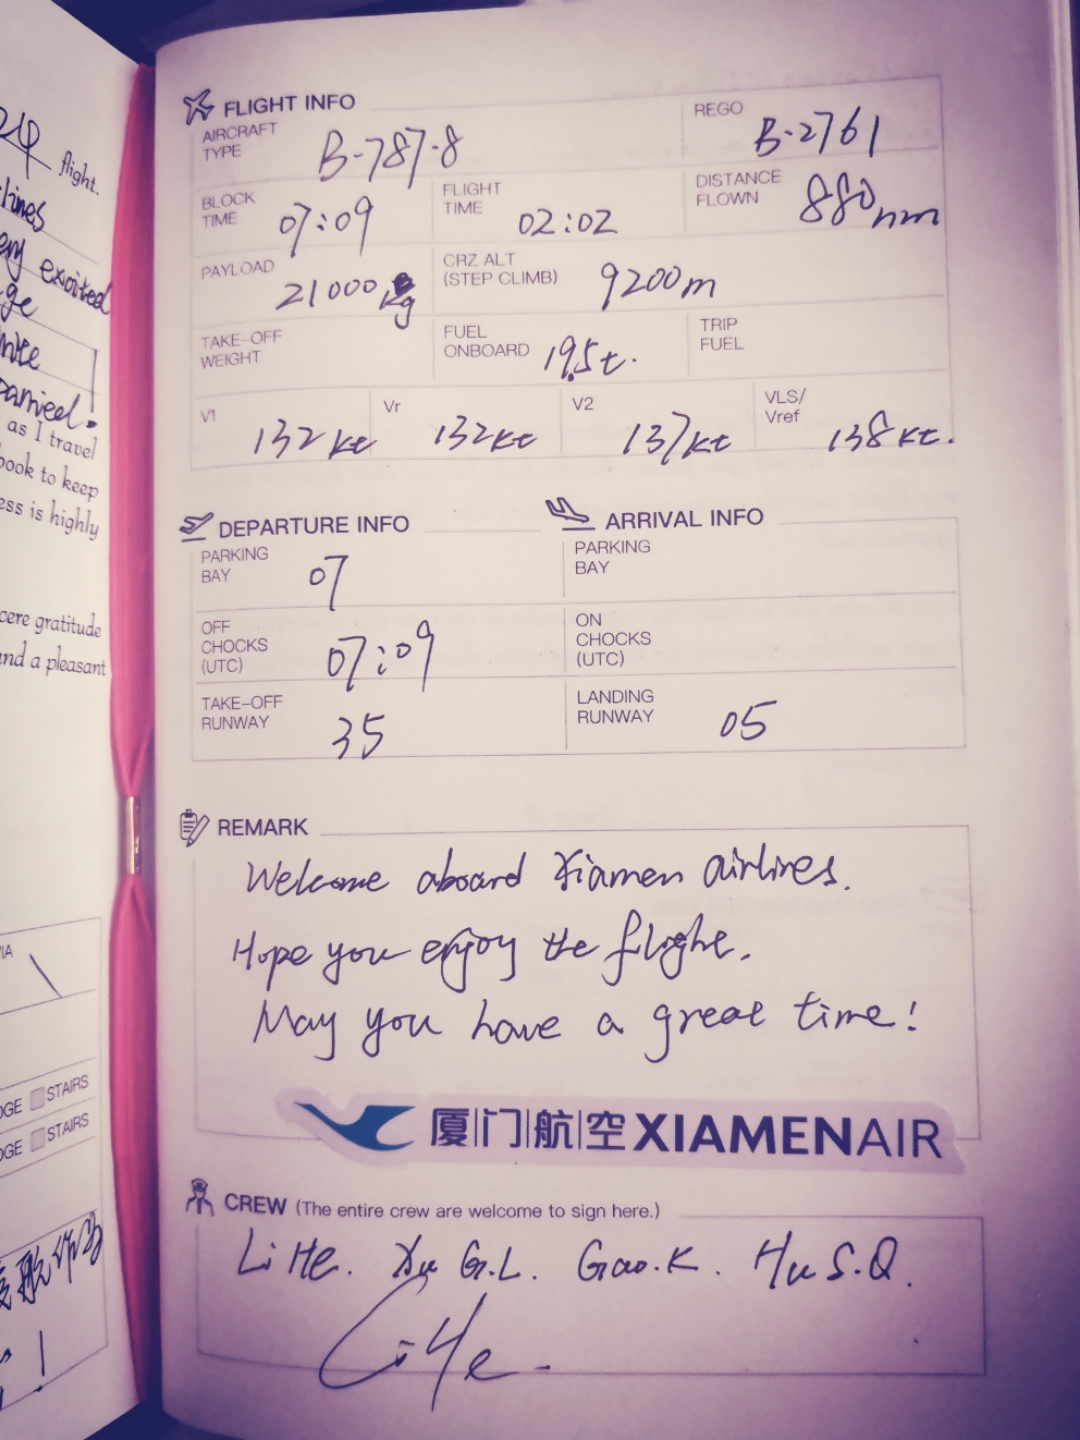 24 flight.
lines
excited
ge
as I travel
book to keep
ess is highly
cere gratitude
and a pleasant
IA
DGE STAIRS
DGE STAIRS
FLIGHT INFO
AIRCRAFT TYPE B-787-8
REGO B-2761
BLOCK TIME 07:09
FLIGHT TIME 02:02
DISTANCE FLOWN 880nm
PAYLOAD 21000 kg
CRZ ALT (STEP CLIMB) 9200m
TAKE-OFF WEIGHT
FUEL ONBOARD 19.5t.
TRIP FUEL
V1 132kt
Vr 132kt
V2 137kt
VLS/Vref 138kt.
DEPARTURE INFO
PARKING BAY 07
OFF CHOCKS (UTC) 07:09
TAKE-OFF RUNWAY 35
ARRIVAL INFO
PARKING BAY
ON CHOCKS (UTC)
LANDING RUNWAY 05
REMARK
Welcome aboard Xiamen airlines.
Hope you enjoy the flight.
May you have a great time!
厦门航空 XIAMENAIR
CREW (The entire crew are welcome to sign here.)
Li He. Xu G.L. Gao.K. Hu S.Q.
Li He